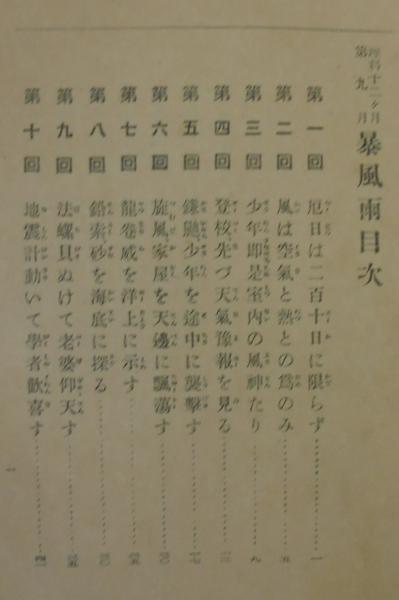 理科十二ヶ月
第九月
暴風雨目次
第一回 厄日は二百十日に限らず……一
第二回 風は空氣と熱との爲のみ……五
第三回 少年即是室内の風神たり……九
第四回 登校先づ天氣豫報を見る……一三
第五回 鎌鼬少年を途中に襲擊す……一七
第六回 旋風家屋を天邊に飄蕩す……二〇
第七回 龍卷威を洋上に示す……二五
第八回 鉛索砂を海底に探る……三〇
第九回 法螺貝ぬけて老婆仰天す……三五
第十回 地震計動いて學者歡喜す……四一
一